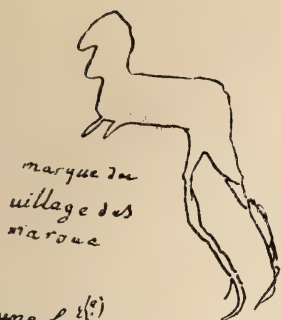 marque du
uillage des
maroua